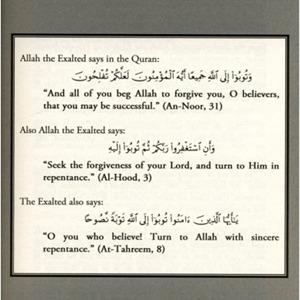 Allah the Exalted says in the Quran:
وَتُوبُوٓا۟ إِلَى ٱللَّهِ جَمِيعًا أَيُّهَ ٱلْمُؤْمِنُونَ لَعَلَّكُمْ تُفْلِحُونَ
“And all of you beg Allah to forgive you, O believers,
that you may be successful.” (An-Noor, 31)
Also Allah the Exalted says:
وَأَنِ ٱسْتَغْفِرُوا۟ رَبَّكُمْ ثُمَّ تُوبُوٓا۟ إِلَيْهِ
“Seek the forgiveness of your Lord, and turn to Him in
repentance.” (Al-Hood, 3)
The Exalted also says:
يَـٰٓأَيُّهَا ٱلَّذِينَ ءَامَنُوا۟ تُوبُوٓا۟ إِلَى ٱللَّهِ تَوْبَةً نَّصُوحًا
“O you who believe! Turn to Allah with sincere
repentance.” (At-Tahreem, 8)